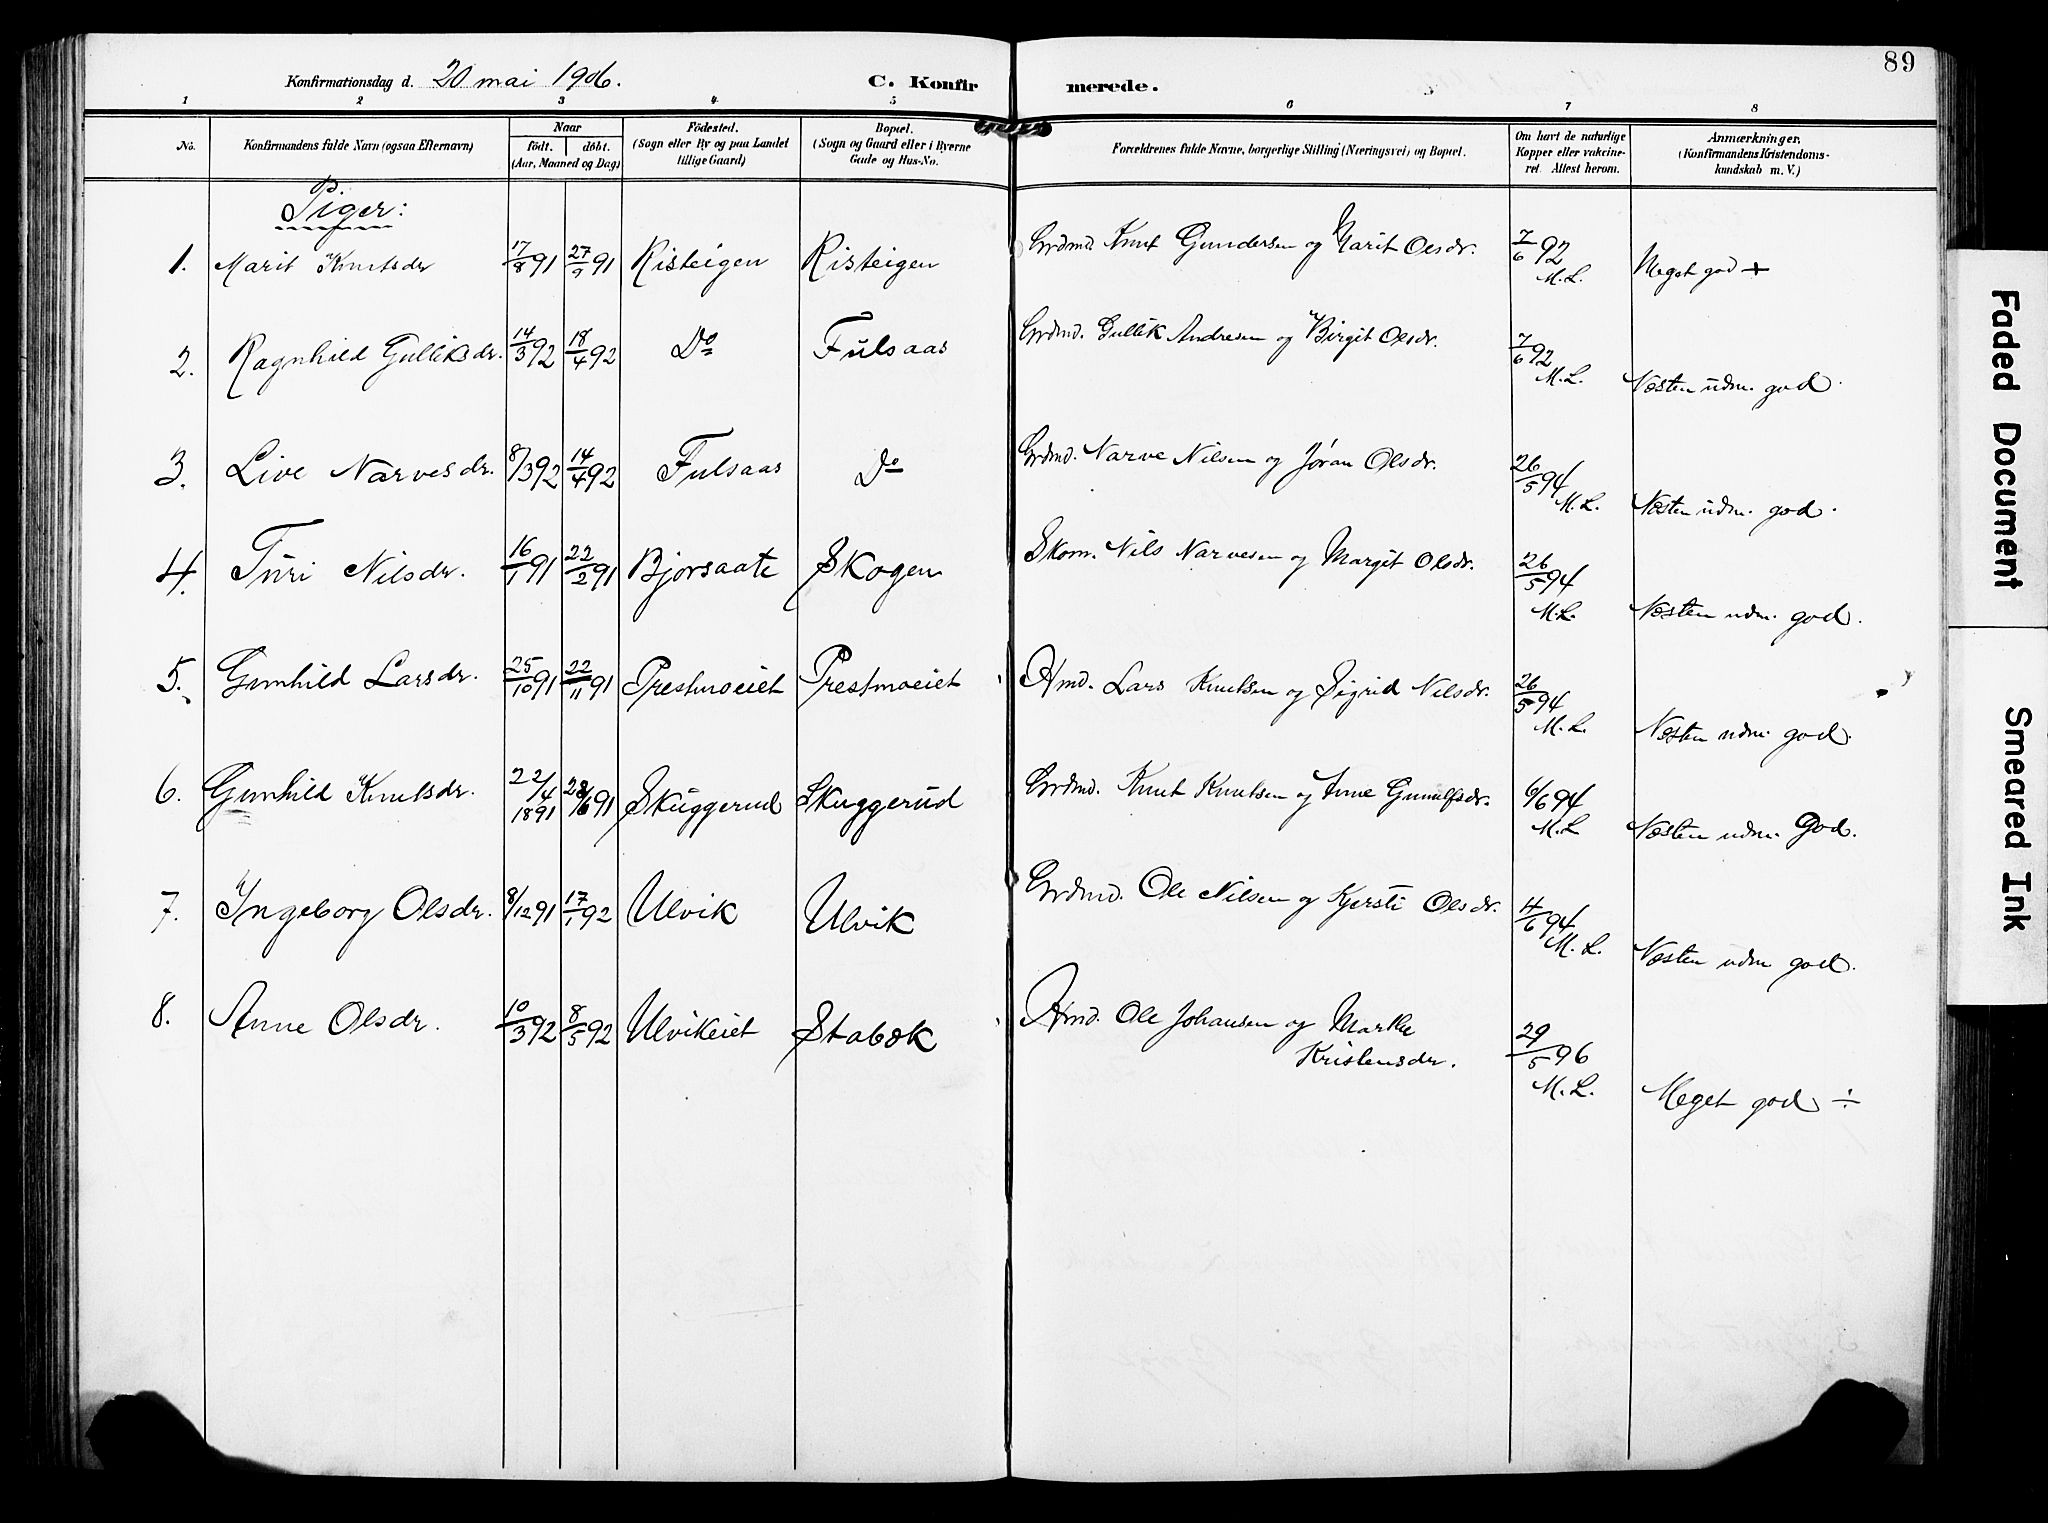 89
Konfirmationsdag d. 20 mai 1906.
C. Konfirmerede.
1 2 3 4 5 6 7 8
No.
Konfirmandens fulde Navn (ogsaa Efternavn)
Naar
født. døbt.
(Aar, Maaned og Dag)
Fødested.
(Sogn eller By og paa Landet
tillige Gaard)
Bopæl.
(Sogn og Gaard eller i Byerne
Gade og Hus-No.
Forældrenes fulde Navne, borgerlige Stilling (Næringsvei) og Bopæl.
Om havt de naturlige
Kopper eller vakcine-
ret. Attest herom.
Anmærkninger.
(Konfirmandens Kristendoms-
kundskab m. V.)
Piger:
1. Marit Knutsdr 17/8 91 27/9 91 Risteigen Risteigen Grdmd Knut Gundersen og Marit Olsdr. 7/6 92 M.L. Meget god +
2. Ragnhild Gulliksdr. 14/3 92 18/4 92 Do Fulsaas Grdmd. Gullik Andresen og Birgit Olsdr. 7/6 92 M.L. Næsten udm. god.
3. Live Narvesdr. 8/3 92 14/4 92 Fulsaas Do Grdmd. Narve Nilsen og Jøran Olsdr. 26/5 94 M.L. Næsten udm. god.
4. Turi Nilsdr. 16/1 91 22/2 91 Bjørsaate Skogen Skom. Nils Narvesen og Margit Olsdr. 26/5 94 M.L. Næsten udm. god.
5. Gunhild Larsdr. 25/10 91 22/11 91 Prestmoeiet Prestmoeiet Hmd. Lars Knutsen og Sigrid Nilsdr. 26/5 94 M.L. Næsten udm. god.
6. Gunhild Knutsdr. 22/4 1891 28/6 91 Skuggerud Skuggerud Grdmd. Knut Knutsen og Anne Gunulfsdr. 6/6 94 M.L. Næsten udm. God.
7. Ingeborg Olsdr. 8/12 91 17/1 92 Ulvik Ulvik Grdmd. Ole Nilsen og Kjersti Olsdr. 4/6 94 M.L. Næsten udm god.
8. Anne Olsdr. 10/3 92 8/5 92 Ulvikeiet Stabæk Hmd. Ole Johansen og Marthe
Kristensdr. 29/5 96 M.L. Meget god ÷
Faded Document
Smeared Ink